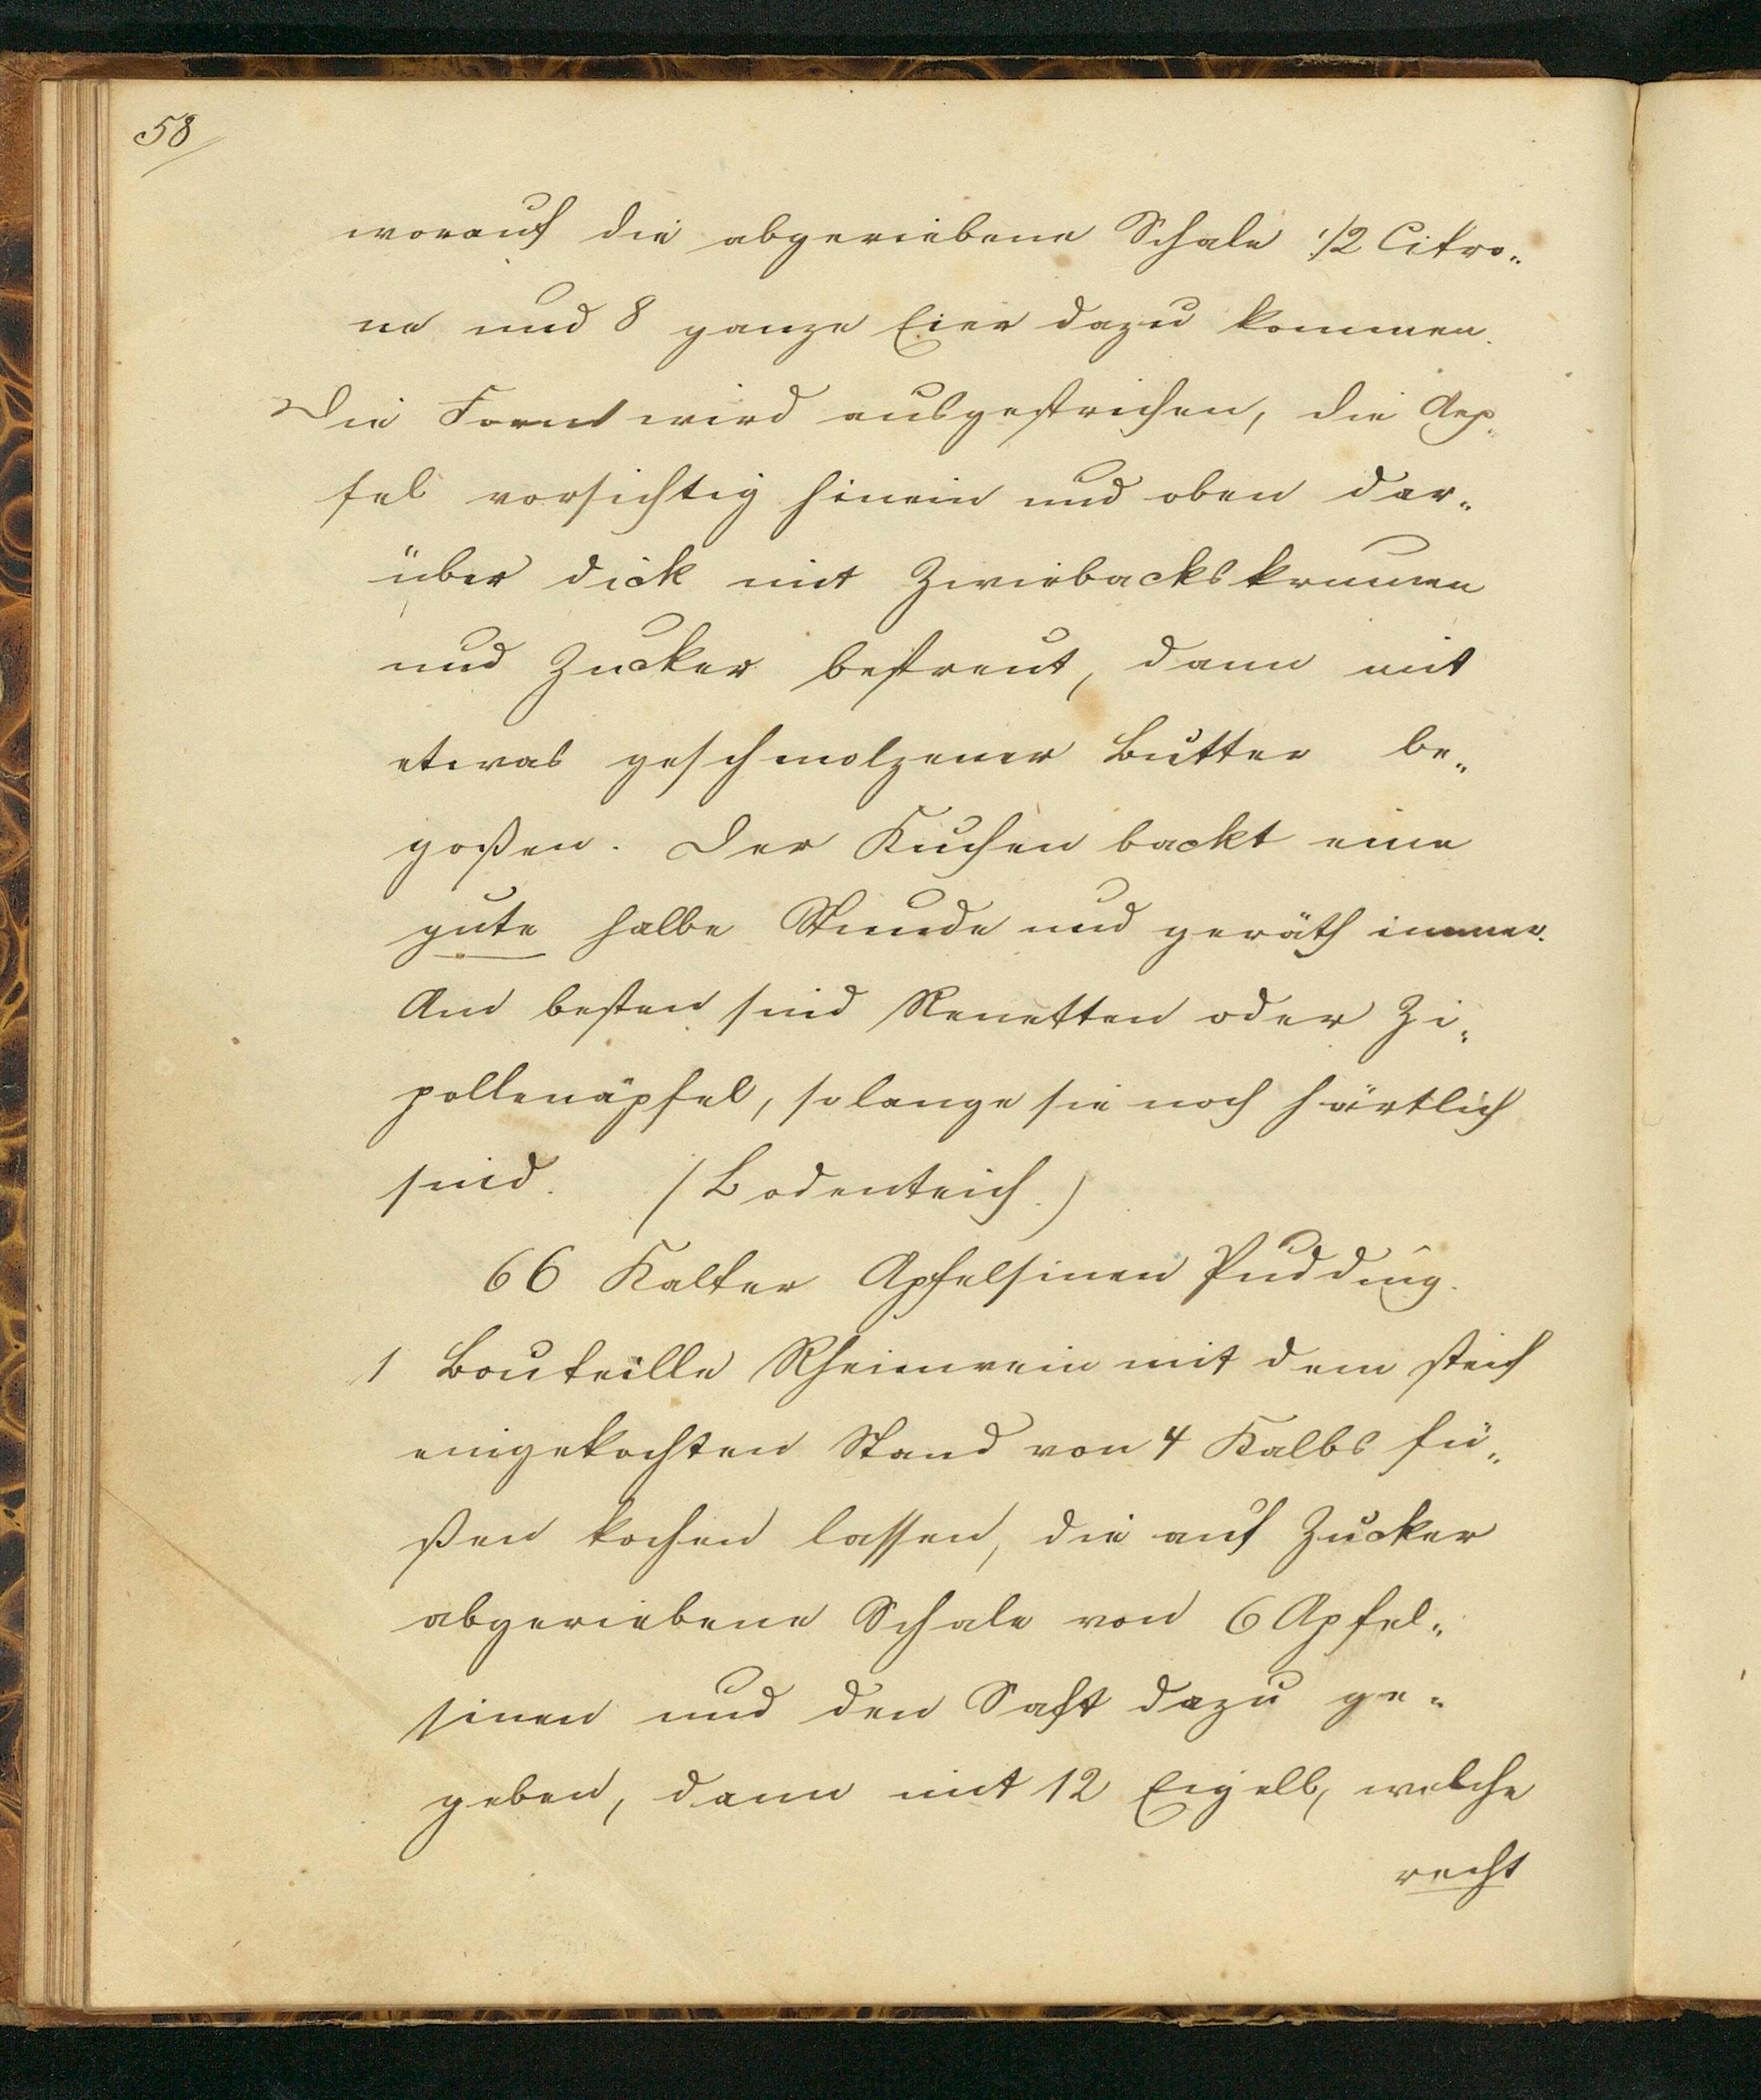 58
worauf die abgeriebene Schale 1/2 Citro„
ne und 8 ganze Eier dazu kommen.
Die Form wird ausgestrichen, die Aep„
fel vorsichtig hinein und oben dar„
über dick mit Zwiebackskrumen
und Zucker bestreut, dann mit
etwas geschmolzener Butter be„
goßen. Der Kuchen backt eine
gute halbe Stunde und geräth immer.
Am besten sind Renetten oder Zi„
pollenäpfel, solange sie noch härtlich
sind. (Bodenteich.)
66 Kalter Apfelsinen Pudding.
1 Bouteille Rheinwein mit dem steif
eingekochten Stand von 4 Kalbs fü„
ßen kochen lassen, die auf Zucker
abgeriebene Schale von 6 Apfel„
sinen und den Saft dazu ge„
geben, dann mit 12 Eigelb, welche
recht